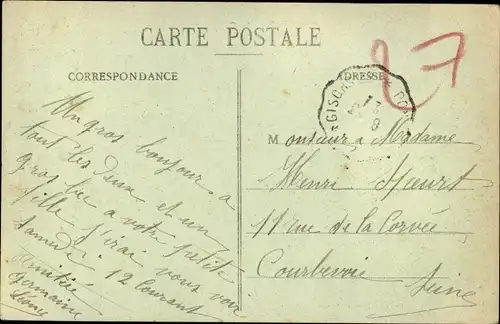 CARTE POSTALE
CORRESPONDANCE
ADRESSE
27
GISORS
Un gros bonjour a
tout les deux et un
gros bec a votre petite
fille j'irai vous voir
samedi 12 courant
Amitiés
Germaine
Monsieur & Madame
Henri
11 rue de la Corvée
Courbevoie
Seine